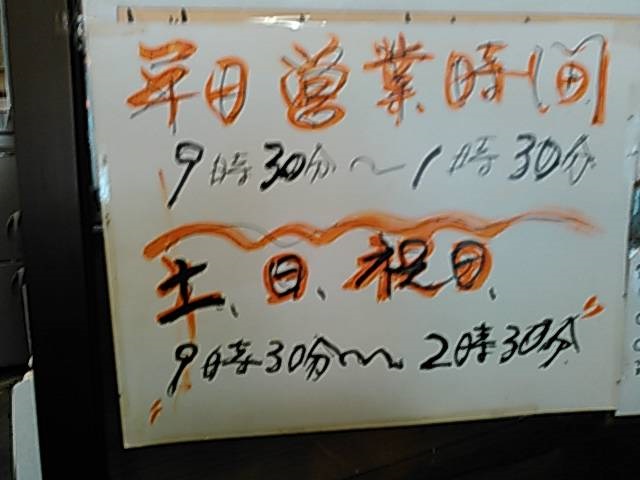 平日営業時間
9時30分～1時30分
土、日、祝日、
9時30分～2時30分